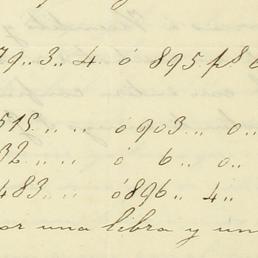 79.. 3.. 4 ó 895 ps 6
515.. .. .. ó 903.. 0..
32.. .. .. ó 6.. 0..
483.. .. .. ó 896.. 4..
or una libra y un